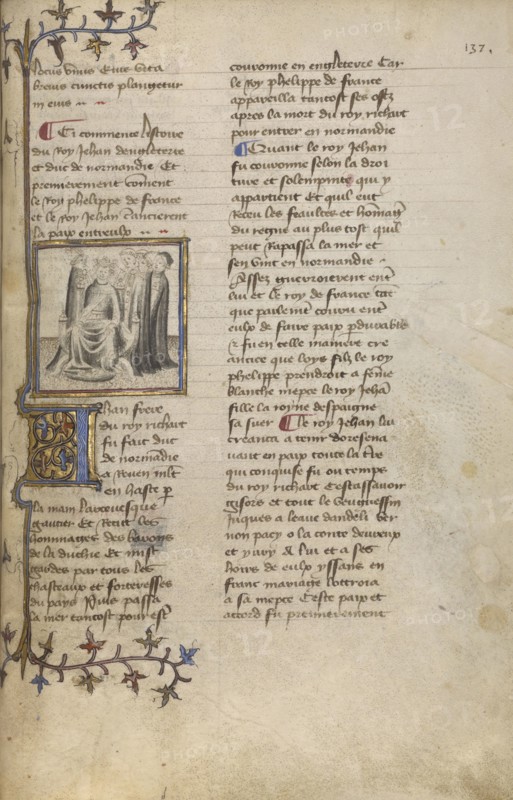 137.
locus unius Eius vita
brevis cunctis plangetur
in evis
Ci commence listoire
du Roy Jehan dengleterre
et duc de normandie Et
premierement coment
le Roy phelippe de france
et le Roy Jehan cancierent
la paix entreulx
Jehan frere
du roy richart
fu fait duc
de normadie
a Roven mlt
en haste p
la main larcevesque
gautier Et Recut les
hommages des barons
de la duchie Et mist
gardes par tous les
chasteaux et forteresses
du pays Puis passa
la mer tantost pour est
couronne en engleterre Car
le Roy phelippe de france
appareilla tantost ses ostz
apres la mort du roy richart
pour entrer en normandie
Quant le roy Jehan
fu couronne selon la droi
ture et solempnite qui y
appartient Et quil eut
Receu les feaultes et homag
du regne au plus tost quil
peut Rapassa la mer et
sen vint en normandie
Assez guerroierent ent
lui et le roy de france tat
que parlemt couru ent
eulx de faire paix pdurable
fu en telle maniere cre
antee que loys filz le roy
phelippe prendroit a feme
blanche niepce le roy Jeha
fille la royne despaigne
sa suer Le roy Jehan lui
creanta a tenir doresena
vant en paix toute la tre
qui conquise fu ou temps
du roy richart Cestassavoir
gisors et tout le veuguessin
Jusques a leaue dandeli ver
non pacy o la conte devreux
et yvry A lui et a ses
hoirs de eulx yssans en
franc mariage lottroia
a sa niepce Ceste paix et
accord fu premierement